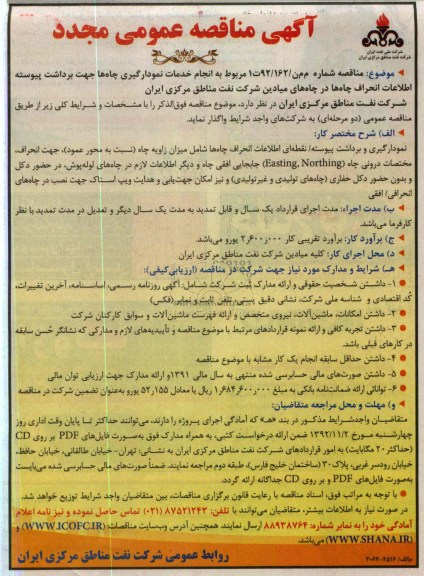 آگهی مناقصه عمومی مجدد
شرکت ملی نفت ایران
شرکت نفت مناطق مرکزی ایران
موضوع: مناقصه شماره م‌م‌ن/۹۲/۱۶۲ت۱ مربوط به انجام خدمات نمودارگیری چاه‌ها جهت برداشت پیوسته
اطلاعات انحراف چاه‌ها در چاه‌های میادین شرکت نفت مناطق مرکزی ایران
شرکت نفت مناطق مرکزی ایران در نظر دارد، موضوع مناقصه فوق‌الذکر را با مشخصات و شرایط کلی زیر از طریق
مناقصه عمومی (دو مرحله‌ای) به شرکت‌های واجد شرایط واگذار نماید.
الف) شرح مختصر کار:
نمودارگیری و برداشت پیوسته/ نقطه‌ای اطلاعات انحراف چاه‌ها شامل میزان زاویه چاه (نسبت به محور عمود)، جهت انحراف،
مختصات درونی چاه (Easting, Northing) جابجایی افقی چاه و دیگر اطلاعات لازم در چاه‌های لوله‌پوش، در حضور دکل
و بدون حضور دکل حفاری (چاه‌های تولیدی و غیرتولیدی) و نیز امکان جهت‌یابی و هدایت ویپ استاک جهت نصب در چاه‌های
انحرافی/ افقی
ب) مدت اجراء: مدت اجرای قرارداد یک سال و قابل تمدید به مدت یک سال دیگر و تعدیل در مدت تمدید با نظر
کارفرما می‌باشد.
ج) برآورد کار: برآورد تقریبی کار ۲٫۶۰۰٫۰۰۰ یورو می‌باشد.
د) محل اجرای کار: کلیه میادین شرکت نفت مناطق مرکزی ایران
هـ) شرایط و مدارک مورد نیاز جهت شرکت در مناقصه (ارزیابی‌کیفی):
۱- داشتن شخصیت حقوقی و ارائه مدارک ثبت شرکت شامل: آگهی روزنامه رسمی، اساسنامه، آخرین تغییرات،
کُد اقتصادی و شناسه ملی شرکت، نشانی دقیق پستی، تلفن ثابت و نمابر (فکس)
۲- داشتن امکانات، ماشین‌آلات، نیروی متخصص و ارائه فهرست ماشین‌آلات و سوابق کارکنان شرکت
۳- داشتن تجربه کافی و ارائه نمونه قراردادهای مرتبط با موضوع مناقصه و تأییدیه‌های لازم و مدارکی که نشانگر حُسن سابقه
در کارهای قبلی باشد.
۴- داشتن حداقل سابقه انجام یک کار مشابه با موضوع مناقصه
۵- داشتن صورت‌های مالی حسابرسی شده منتهی به سال مالی ۱۳۹۱و ارائه مدارک جهت ارزیابی توان مالی
۶- توانائی ارائه ضمانت‌نامه بانکی به مبلغ ۱٫۶۸۴٫۶۰۰٫۰۰۰ ریال یا معادل ۵۲٫۱۵۵ یورو به‌عنوان تضمین شرکت در مناقصه
و) مهلت و محل مراجعه متقاضیان:
متقاضیان واجدشرایط مذکور در بند «هـ» که آمادگی اجرای پروژه را دارند، می‌توانند حداکثر تا پایان وقت اداری روز
چهارشنبه مورخ ۱۳۹۲/۱۱/۲ ضمن ارائه درخواست کتبی، به همراه مدارک فوق به‌صورت فایل‌های PDF بر روی CD
(حداکثر ۲۰ مگابایت) به امور قراردادهای شرکت نفت مناطق مرکزی ایران به نشانی: تهران- خیابان طالقانی، خیابان حافظ،
خیابان رودسر غربی، پلاک ۳۰ (ساختمان خلیج فارس)، طبقه دوم مراجعه نمایند. ضمناً صورت‌های مالی حسابرسی شده می‌بایست
به‌صورت فایل‌های PDF و بر روی CD جداگانه ارائه گردد.
با توجه به مراتب فوق، اسناد مناقصه با رعایت قانون برگزاری مناقصات، بین متقاضیان واجد شرایط توزیع خواهد شد.
در صورت نیاز به اطلاعات بیشتر، متقاضیان می‌توانند با تلفن: ۸۷۵۲۱۲۴۳ (۰۲۱) تماس حاصل نموده و نیز نامه اعلام
آمادگی خود را به نمابر شماره: ۸۸۹۳۸۷۶۴ ارسال نمایند. همچنین آدرس وب‌سایت مناقصات: (WWW.ICOFC.IR) و
(WWW.SHANA.IR) می‌باشد.
روابط عمومی شرکت نفت مناطق مرکزی ایران